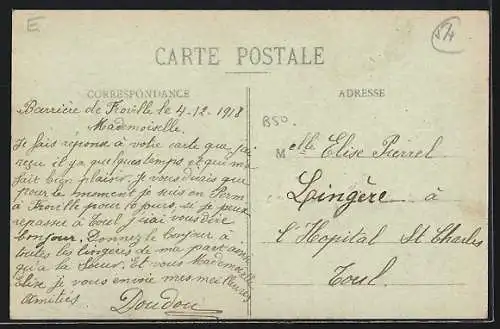 E
54
CARTE POSTALE
CORRESPONDANCE
ADRESSE
Barrière de Froville le 4-12-1918
Mademoiselle.
Je fais réponse à votre carte que j'ai
reçu il y a quelques temps, et qui m'a
fait bien plaisir, je vous dirais que
pour le moment je suis en Perm
à Froville pour 10 jours, si je peux
repasser à Toul j'irai vous dire
bonjour. Donnez le bonjour à
toutes les lingères de ma part ainsi
qu'a la Sœur. Et vous Mademoiselle
Elise je vous envoie mes meilleures
amitiés. Doudou
B50.
Melle Elise Pierrel
Lingère à
l'Hopital St Charles
Toul.